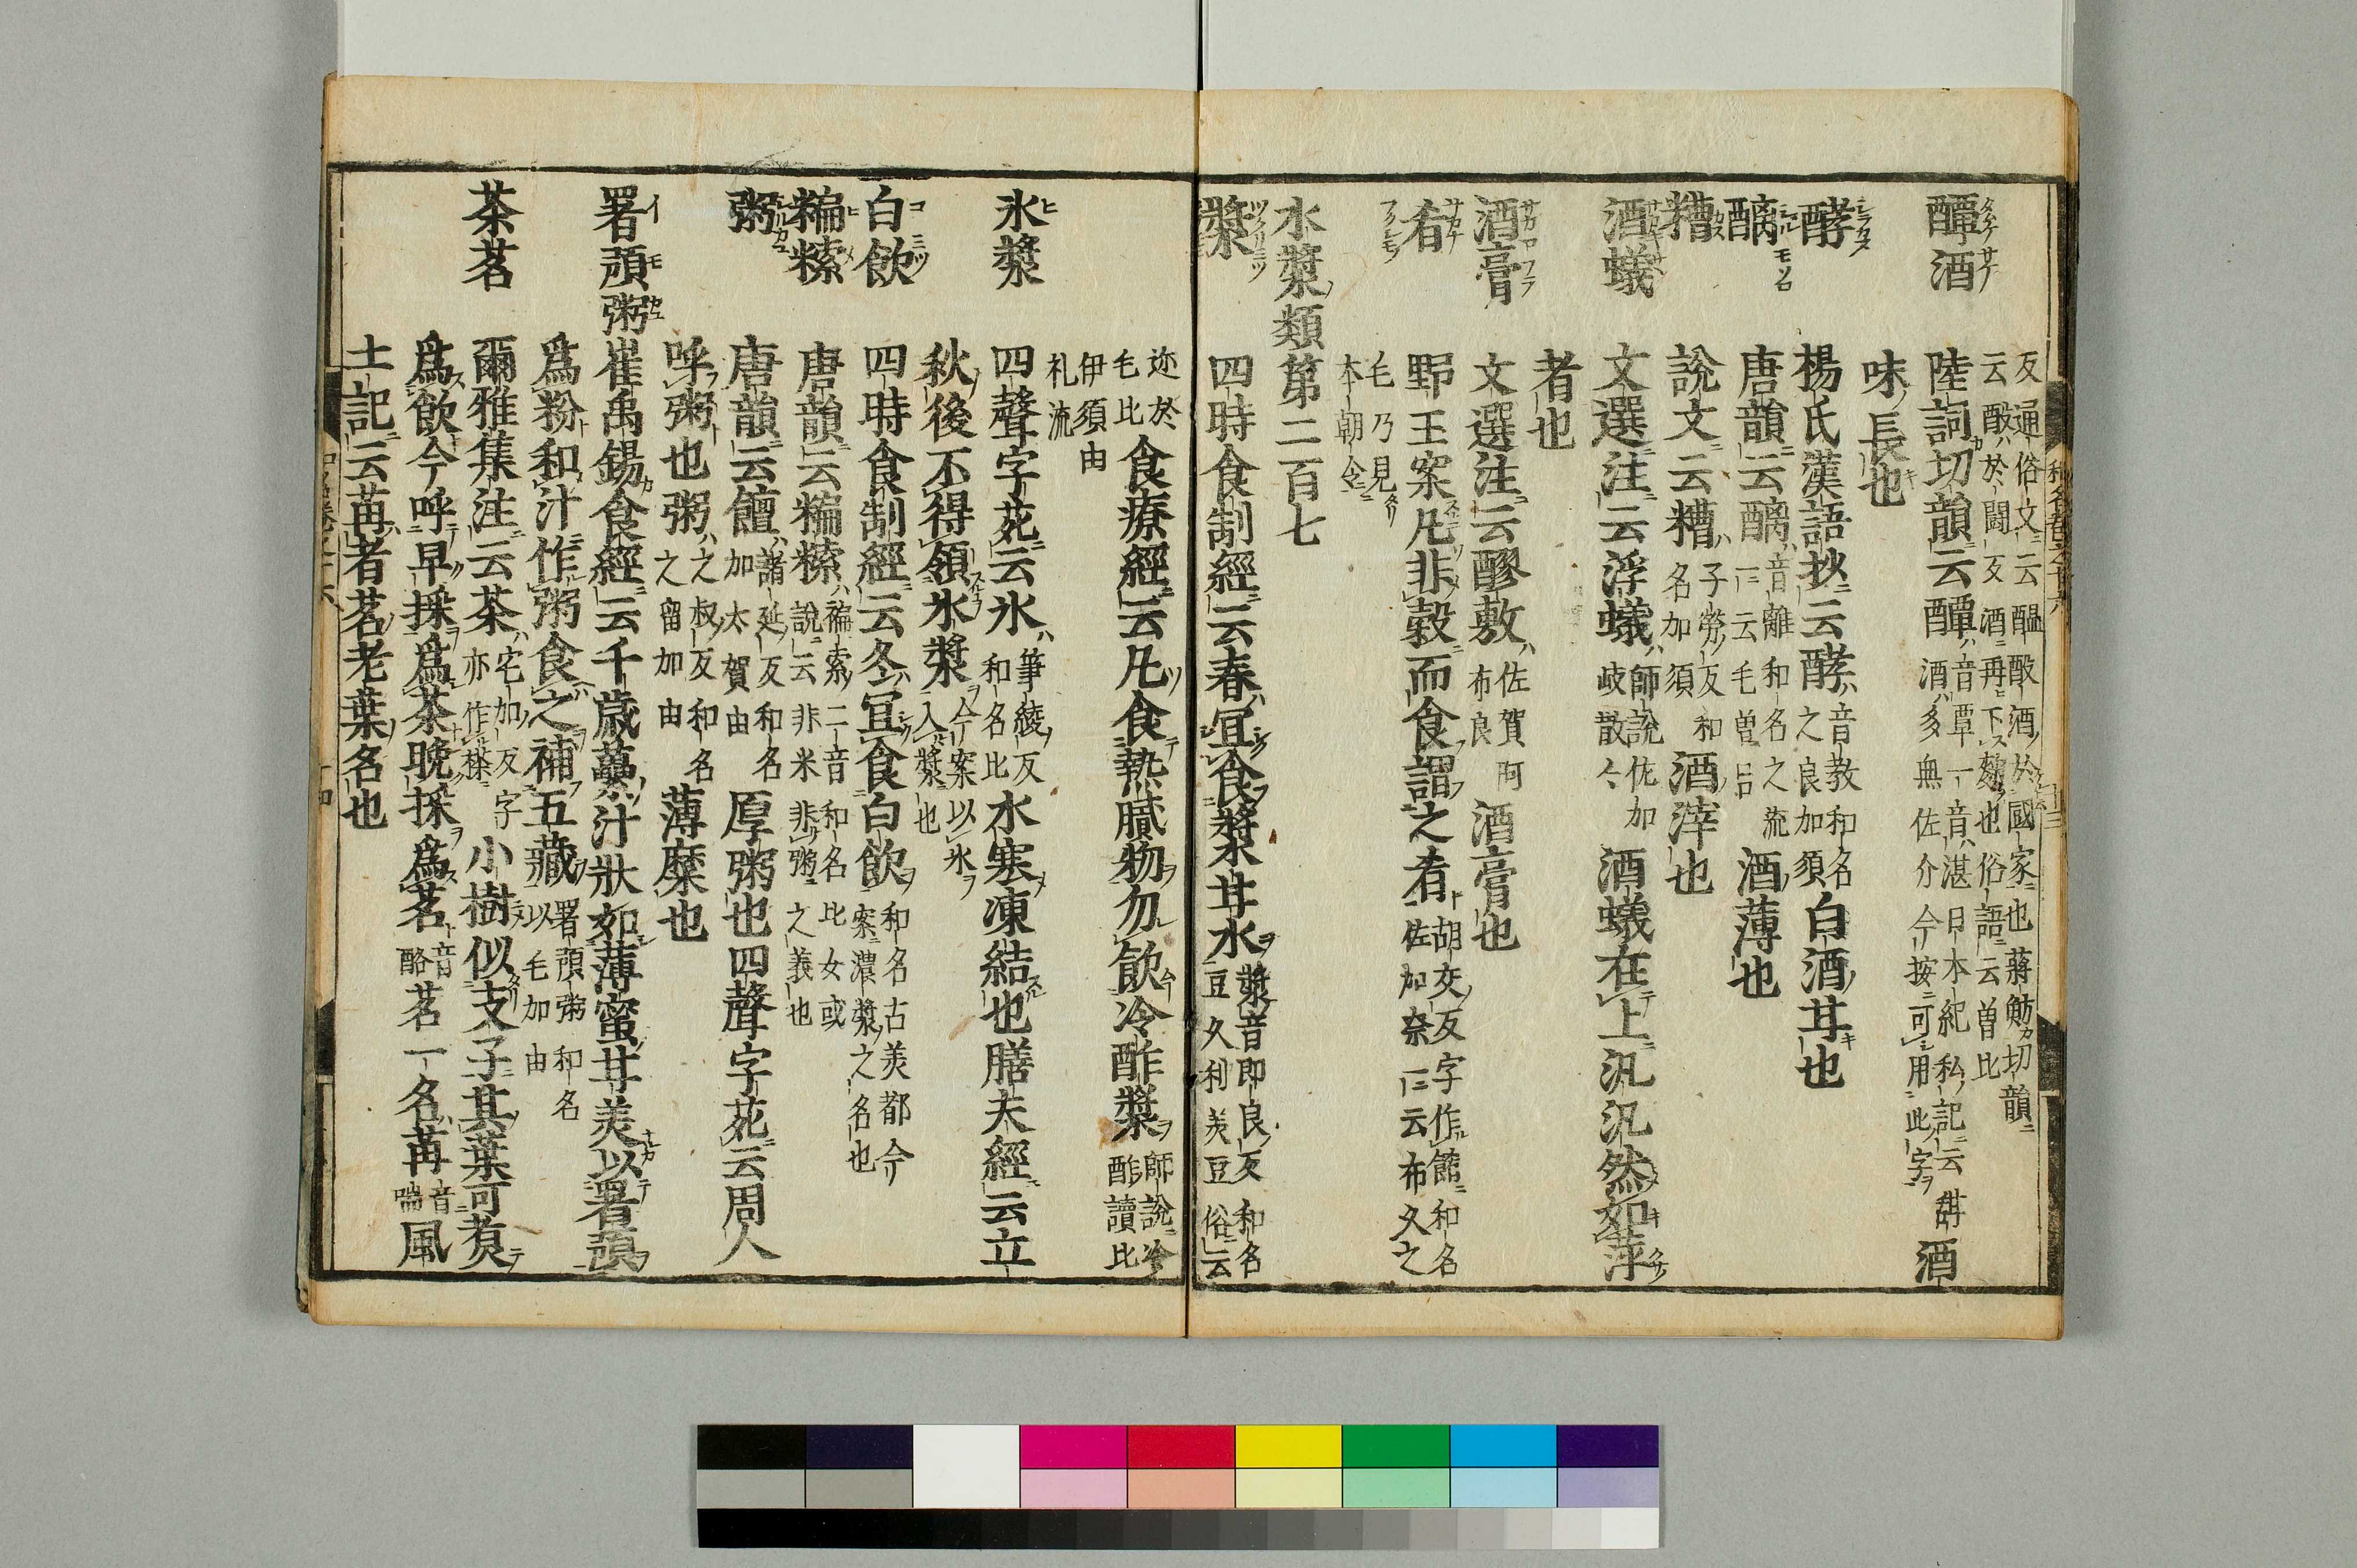 反通俗文云醖酘酒於國家也蔣魴切韻
云酘於鬪反酒再下麹也俗語云曽比
醰酒 陸詞切韻云醰音覃一音湛日本紀私記云甜酒多無佐介今按可用此字酒
味長也
酵 楊氏漢語抄云酵音教和名之良加須白酒甘也
醨 唐韻云醨音離和名之流一云毛曽呂酒薄也
糟 說文云糟子勞反和名加須酒滓也
酒蟻 文選注云浮蟻師說佐加岐散々酒蟻在上汎汎然如萍
者也
酒膏 文選注云醪敷佐賀阿布良酒膏也
肴 野王案凡非穀而食謂之肴胡交反字作餚和名佐加奈一云布久之
毛乃見
本朝令
水漿類第二百七
漿 四時食制經云春宜食漿甘水漿音即良反和名豆久利美豆俗云
迩於
毛比 食療經云凡食熱膩物勿飲冷酢漿師說冷酢讀比
伊須由
礼流
氷漿 四聲字苑云氷筆綾反和名比水寒凍結也膳夫經云立
秋後不得領氷漿今案以氷入漿也
白飲 四時食制經云冬宜食白飲和名古美都今案濃漿之名也
糄𥻨 唐韻云糄𥻨褊索二音和名比女或說云非米非粥之義也
粥 唐韻云饘諸延反和名加太賀由厚粥也四聲字苑云周人
呼粥也粥之叔反和名之留加由薄糜也
署預粥 崔禹錫食經云千歳蘽汁狀如薄蜜甘美以署預
爲粉和汁作粥食之補五藏署預粥和名以毛加由
茶茗 爾雅集注云茶宅加反字亦作㯽小樹似支子其葉可煑
爲飲今呼早採爲茶晚採爲茗音酩茗一名荈音喘風
土記云荈者茗老葉名也